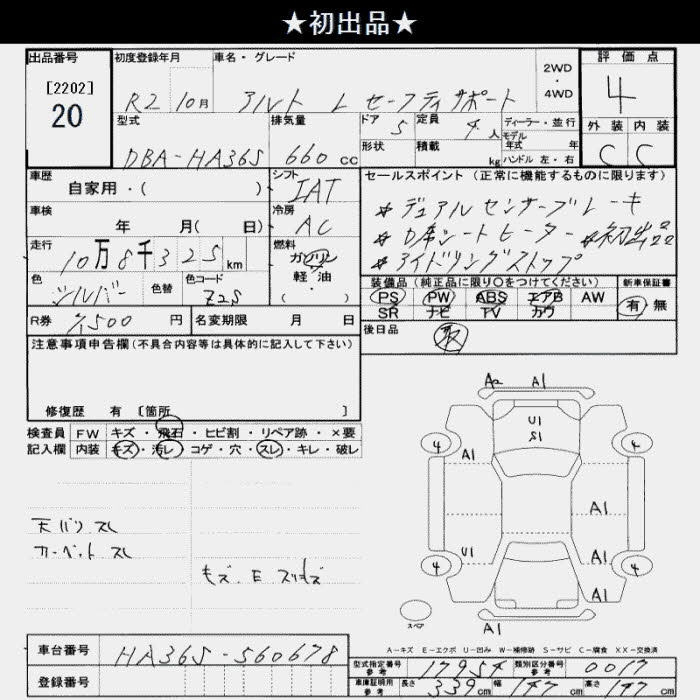 ★初出品★
出品番号 初度登録年月 車名・グレード 2WD・4WD 評価点
[2202]
20
R2 10月 アルト L セーフティサポート 4
型式 排気量 ドア 5 定員 4人 ディーラー・並行 外装 内装
DBA-HA36S 660cc 形状 積載 kg モデル年式 年 C C
ハンドル 左・右
車歴 自家用・( ) シフト IAT セールスポイント (正常に機能するものに限ります)
車検 年 月( 日) 冷房 AC ☆デュアルセンサーブレーキ
☆D席シートヒーター ☆初出品
走行 10万8千325km 燃料 ガソリン 軽・油 ( ) ☆アイドリングストップ
色 シルバー 色替 色コード Z2S 装備品 (純正品に限り○をつけてください) 新車保証書
PS PW ABS エアB AW 有 無
SR ナビ TV カワ
R券 7,500円 名変期限 月 日 後日品 取
注意事項申告欄 (不具合内容等は具体的に記入して下さい)
修復歴 有 [箇所 ]
検査員 FW キズ・飛石・ヒビ割・リペア跡・×要
記入欄 内装 キズ・汚レ・コゲ・穴・スレ・キレ・破レ
天バリ スレ
カーペット スレ
A2 A1
U1
S1
4 4
A1
A1
U1 A1
4 4
A1
スペア A1
A-キズ E-エクボ U-凹み W-補修跡 S-サビ C-腐食 XX-交換済
車台番号 HA36S-560678
登録番号
型式指定番号 参考 17954 類別区分番号 参考 0017
車庫証明用 参考 長さ 339cm 幅 147cm 高さ 147cm